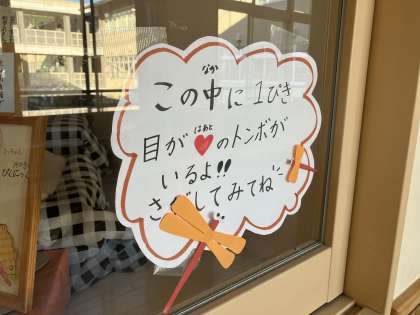 この中に1ぴき
なか
目が♥のトンボが
はあと
いるよ!!
さがしてみてね